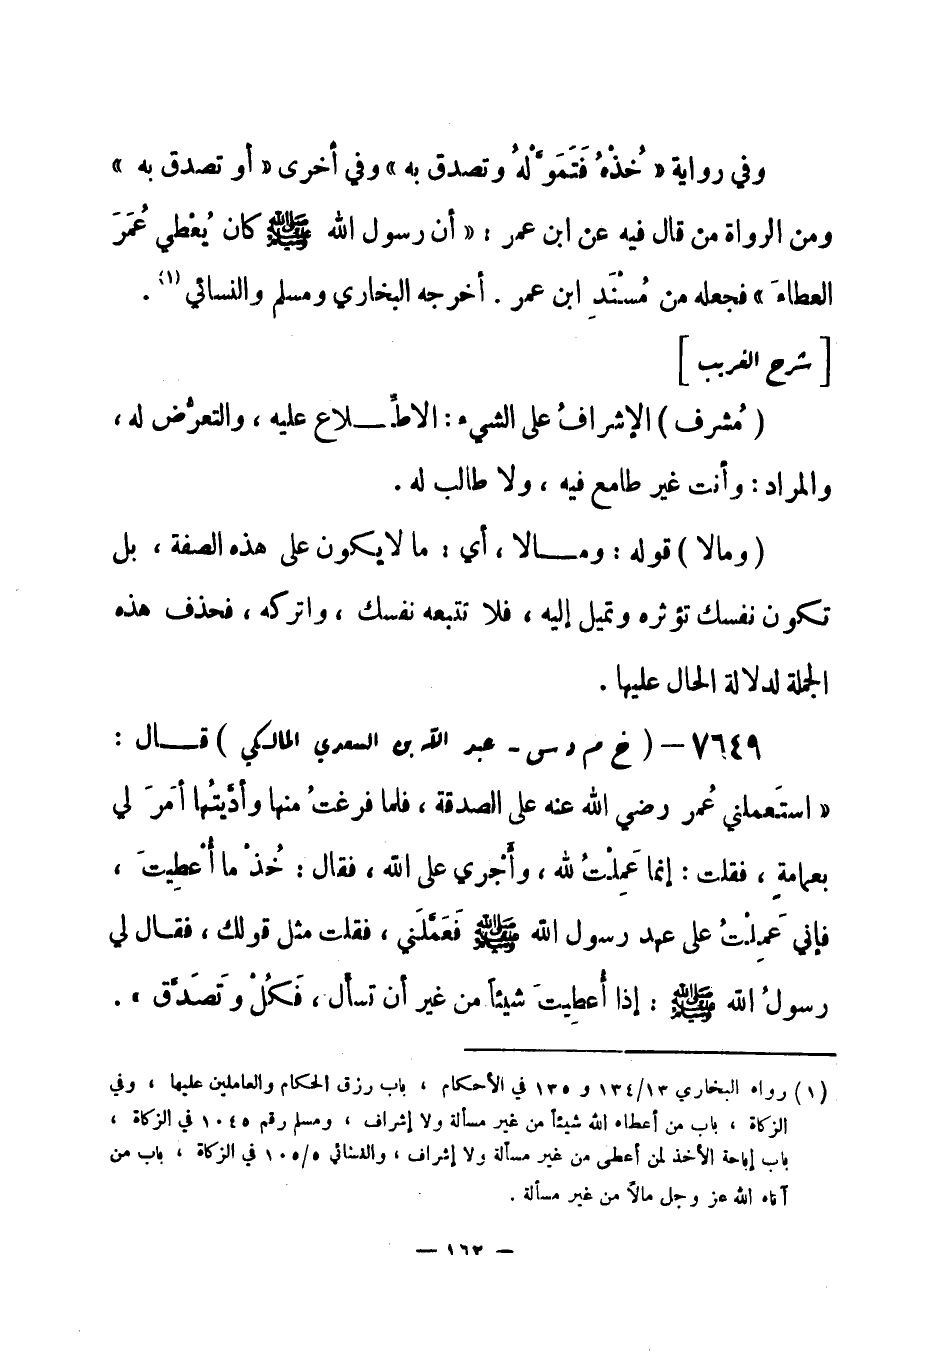 وفي رواية « خُذْهُ فَتَمَوَّلْهُ وتصدق به » وفي أخرى « أو تصدق به »
ومن الرواة من قال فيه عن ابن عمر : « أن رسول الله ﷺ كان يُعْطي عُمَرَ
العطاءَ » فجعله من مُسْنَدِ ابن عمر . أخرجه البخاري ومسلم والنسائي (١) .
[ شرح الغريب ]
( مُشرف ) الإشرافُ على الشيء : الاطِّــلاع عليه ، والتعرُّض له ،
والمراد : وأنت غير طامع فيه ، ولا طالب له .
( ومالا ) قوله : ومــالا ، أي : ما لا يكون على هذه الصفة ، بل
تكون نفسك تؤثره وتميل إليه ، فلا تتبعه نفسك ، واتركه ، فحذف هذه
الجملة لدلالة الحال عليها .
٧٦٤٩ – ( خ م د س - عبد الله بن السعدي المالكي ) قــال :
« استَعملني عُمر رضي الله عنه على الصدقة ، فلما فرغتُ منها وأدَّيتُها أمَرَ لي
بعمامةٍ ، فقلت : إنما عَمِلْتُ لله ، وأَجْري على الله ، فقال : خُذْ ما أُعْطِيتَ ،
فإني عَمِلْتُ على عهد رسول الله ﷺ فَعَمَّلَني ، فقلت مثل قولك ، فقال لي
رسولُ الله ﷺ : إذا أُعطِيتَ شيئاً من غير أن تسأل ، فَكُلْ وتَصَدَّق » .
(١) رواه البخاري ١٣٤/١٣ و ١٣٥ في الأحكام ، باب رزق الحكام والعاملين عليها ، وفي
الزكاة ، باب من أعطاه الله شيئاً من غير مسألة ولا إشراف ، ومسلم رقم ١٠٤٥ في الزكاة ،
باب إباحة الأخذ لمن أعطي من غير مسألة ولا إشراف ، والنسائي ١٠٥/٥ في الزكاة ، باب من
آتاه الله عز وجل مالاً من غير مسألة .
— ١٦٢ —